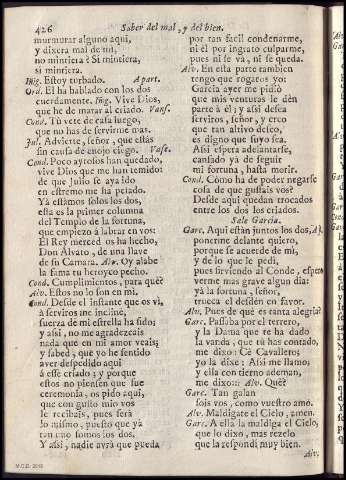 426 Saber del mal, y del bien.
murmurar alguno aqui,
y dixera mal de mi,
no mintiera? Si mintiera,
si mintiera.
Iñig. Estoy turbado. Aparte.
Ord. El ha hablado con los dos
cuerdamente. Iñig. Vive Dios,
que he de matar al criado. Vans.
Cond. Tù vete de casa luego,
que no has de servirme mas.
Jul. Advierte, señor, que estàs
sin causa de enojo ciego. Vase.
Cond. Poco ayrosos han quedado,
vive Dios que me han temido:
de que Julio se aya ido
en estremo me ha pesado.
Yà estàmos solos los dos,
esta es la primer columna
del Templo de la fortuna,
que empiezo à labrar en vos:
El Rey merced os ha hecho,
Don Alvaro, de una llave
de su Camara. Alv. Oy alabe
la fama tu heroyco pecho.
Cond. Cumplimientos, para què?
Alv. Estos no lo son en mi.
Cond. Desde el instante que os vi,
à serviros me inclinè,
fuerza de mi estrella ha sido;
y assi, no me agradezcais
nada que en mi amor veais;
y sabed, que yo he sentido
aver despedido aqui
à esse criado; y porque
estos no piensen que fue
ceremonia, os pido aqui,
que con gusto mio vos
le recibais, pues serà
lo mismo, puesto que yà
tan uno somos los dos.
Y assi, nadie avrà que pueda
por tan facil condenarme,
ni èl por ingrato culparme,
pues ni se và, ni se queda.
Alv. En esta parte tambien
tengo que rogaros yo:
Garcia ayer me pidiò
que mis venturas le dèn
parte à èl; y assi desea
serviros, señor, y creo
que tan altivo deseo,
es digno que suyo sea.
Assi espera adelantarse,
cansado yà de seguir
mi fortuna, hasta morir.
Cond. Como ha de poder negarse
cosa de que gustais vos?
Desde aqui quedan trocados
entre los dos los criados.
Sale Garcia.
Garc. Aqui estàn juntos los dos,
ponerme delante quiero,
porque se acuerde de mi,
y de lo que le pedi,
pues sirviendo al Conde, espero
verme mas grave algun dia:
yà la fortuna, señor,
trueca el desdèn en favor.
Alv. Pues de què es tanta alegria?
Garc. Passaba por el terrero,
y la Dama que te ha dado
la vanda, que tù has contado,
me dixo: Cè Cavallero;
yo la dixe: Assi me llamo;
y ella con tierno ademan,
me dixo::: Alv. Què?
Garc. Tan galan
sois vos, como vuestro amo.
Alv. Maldigate el Cielo, amen.
Garc. A ella la maldiga el Cielo,
que lo dixo, mas rezelo
que la respondi muy bien.
Alv.